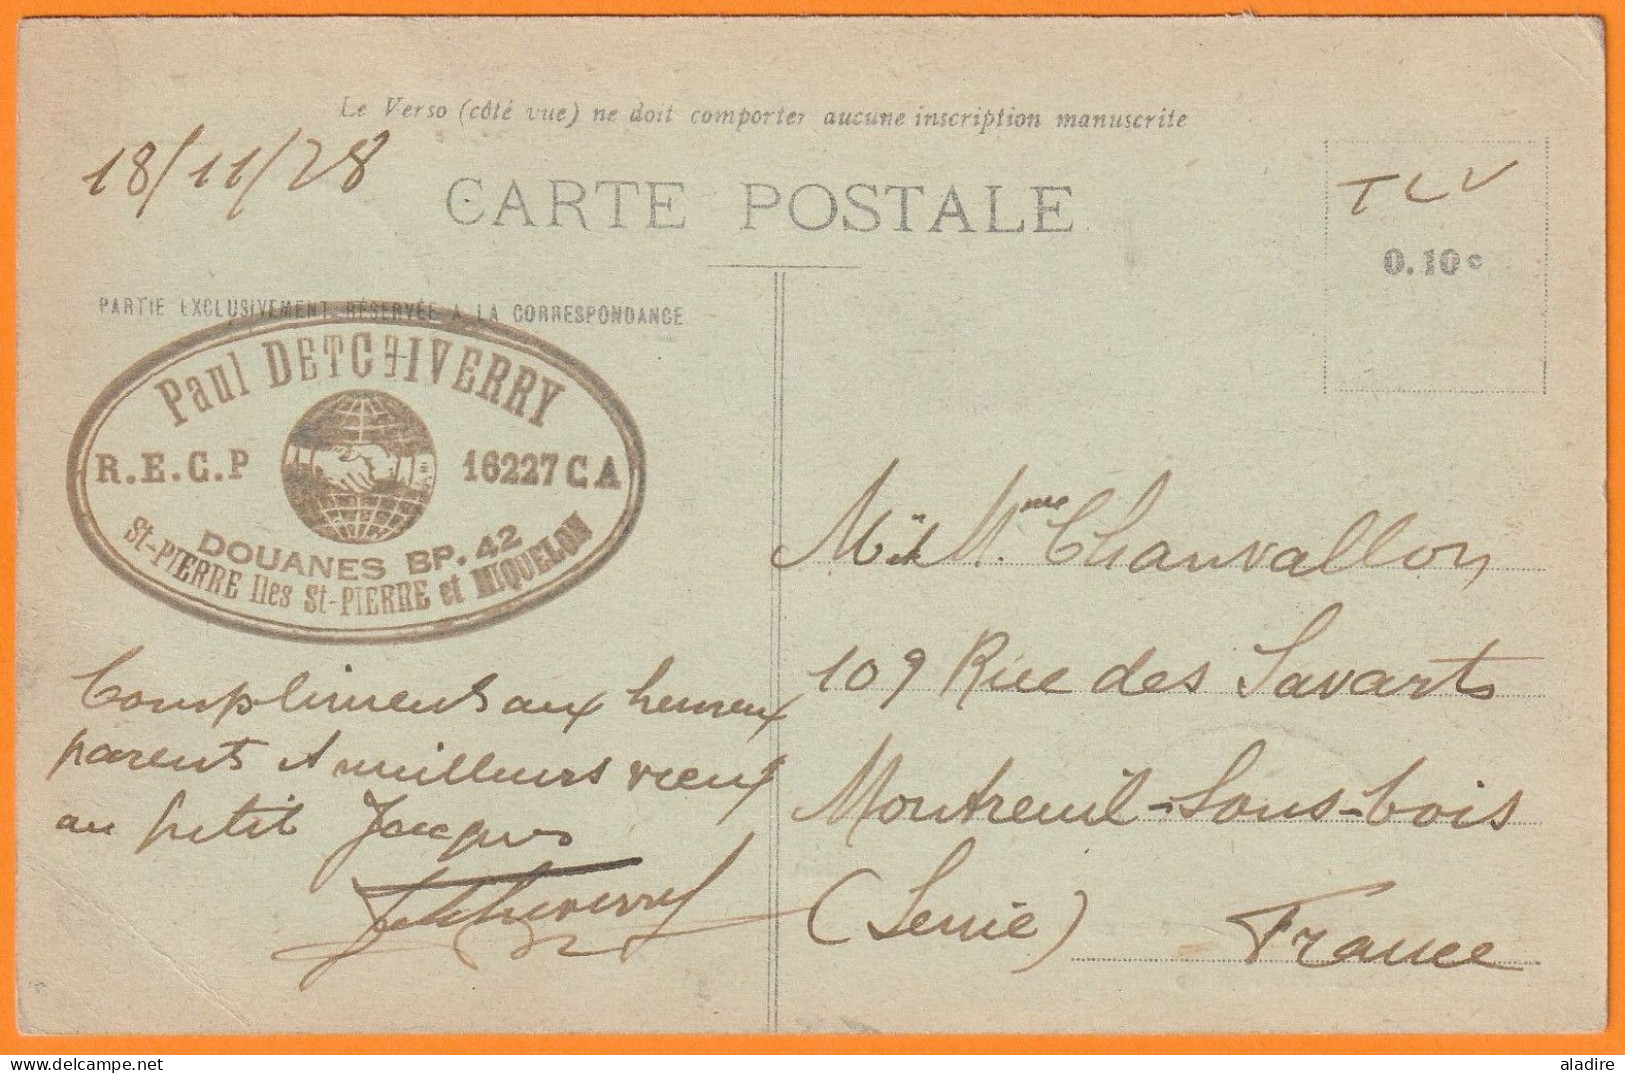 Le Verso (côté vue) ne doit comporter aucune inscription manuscrite
18/11/28
CARTE POSTALE
TCV
0.10 c
PARTIE EXCLUSIVEMENT RÉSERVÉE A LA CORRESPONDANCE
Paul DETCHEVERRY
R.E.C.P 16227 CA
DOUANES BP. 42
St-PIERRE Iles St-PIERRE et MIQUELON
Compliments aux heureux
parents et meilleurs vœux
au petit Jacques
Detcheverry
M. et Mme Chanvallon
109 Rue des Savarts
Montreuil-Sous-bois
(Seine)
France
aladire